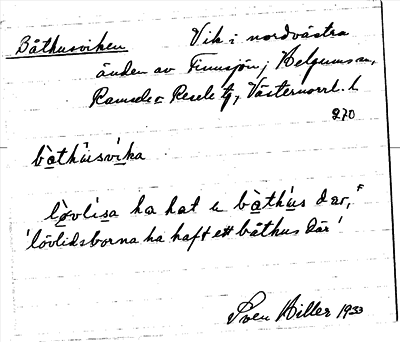 Båthusviken Vik i nordvästra
änden av Finnsjön, Helgums sn,
Ramsele o Resele tg, Västernorrl. l
270
bàthúsvika
lòvlisa ha hat e bàthús dar,
'lövlidsborna ha haft ett båthus där'
Sven Hiller 1933